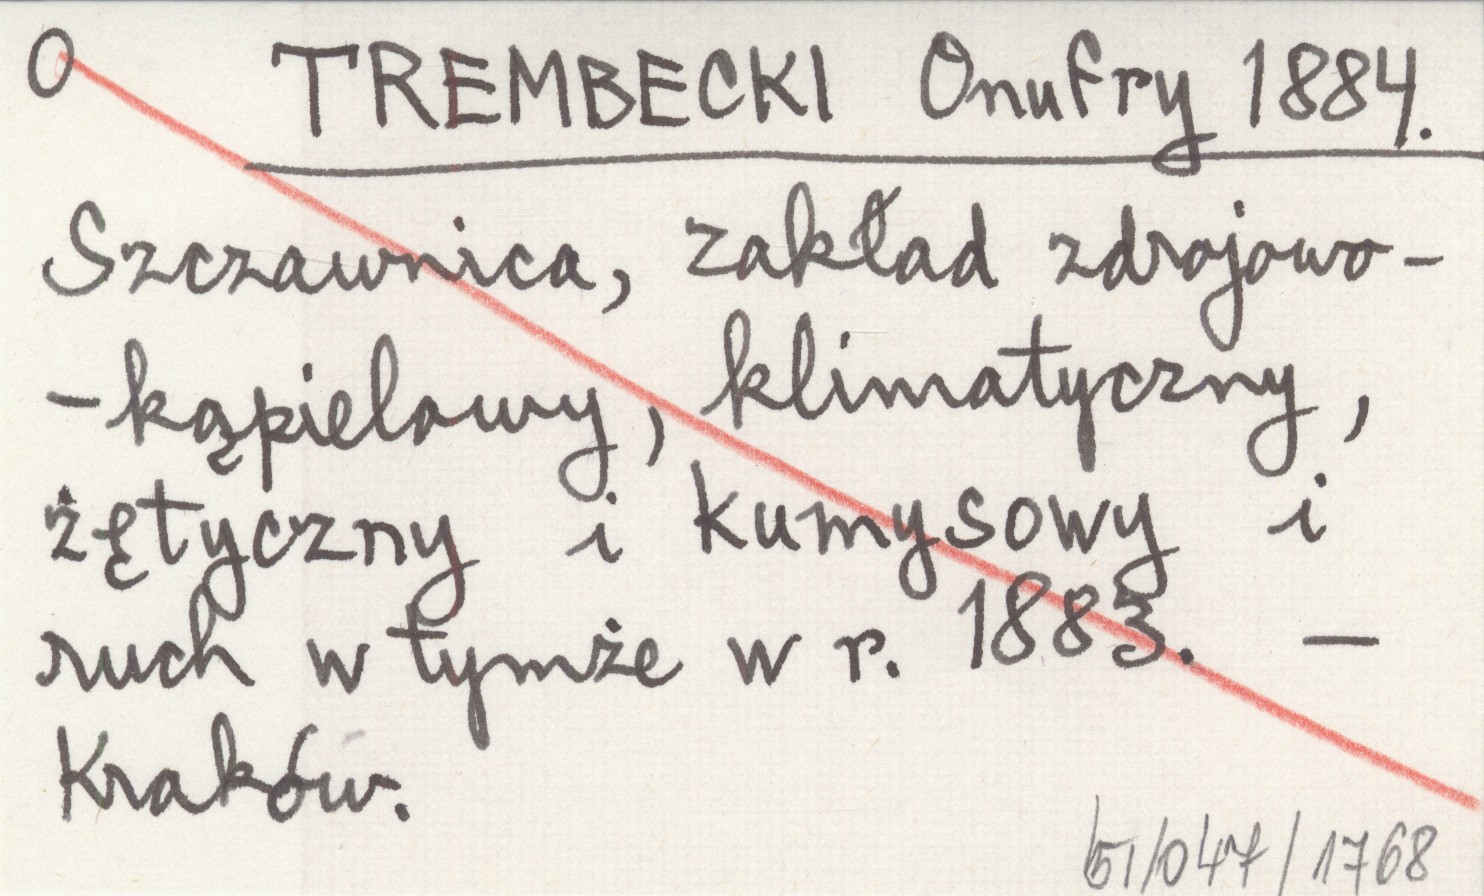 O TREMBECKI Onufry 1884.
Szczawnica, zakład zdrojowo-
-kąpielowy, klimatyczny,
żętyczny i kumysowy i
ruch w tymże w r. 1883. —
Kraków.
51/047/1768